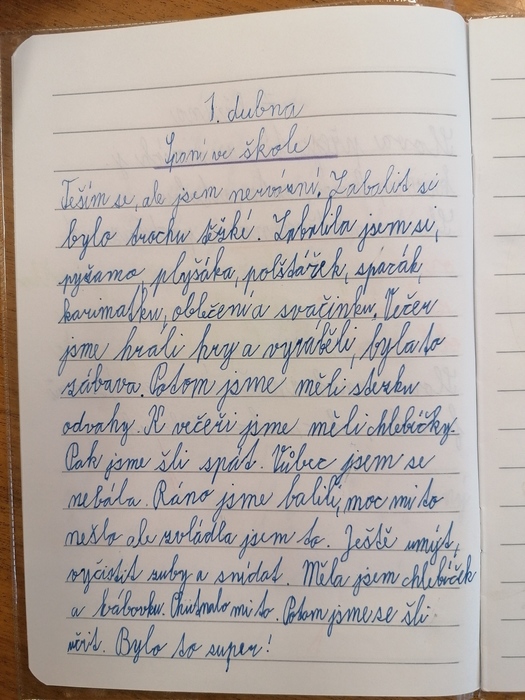 1. dubna
Spaní ve škole
Těším se, ale jsem nervózní. Zabalit si
bylo trochu těžké. Zabalila jsem si,
pyžamo, plyšáka, polštářek, spacák,
karimatku, oblečení a svačinku. Večer
jsme hráli hry a vyráběli, byla to
zábava. Potom jsme měli stezku
odvahy. K večeři jsme měli chlebíčky.
Pak jsme šli spát. Vůbec jsem se
nebála. Ráno jsme balili, moc mi to
nešlo ale zvládla jsem to. Ještě umýt,
vyčistit zuby a snídat. Měla jsem chlebíček
a bábovku. Chutnalo mi to. Potom jsme se šli
učit. Bylo to super!